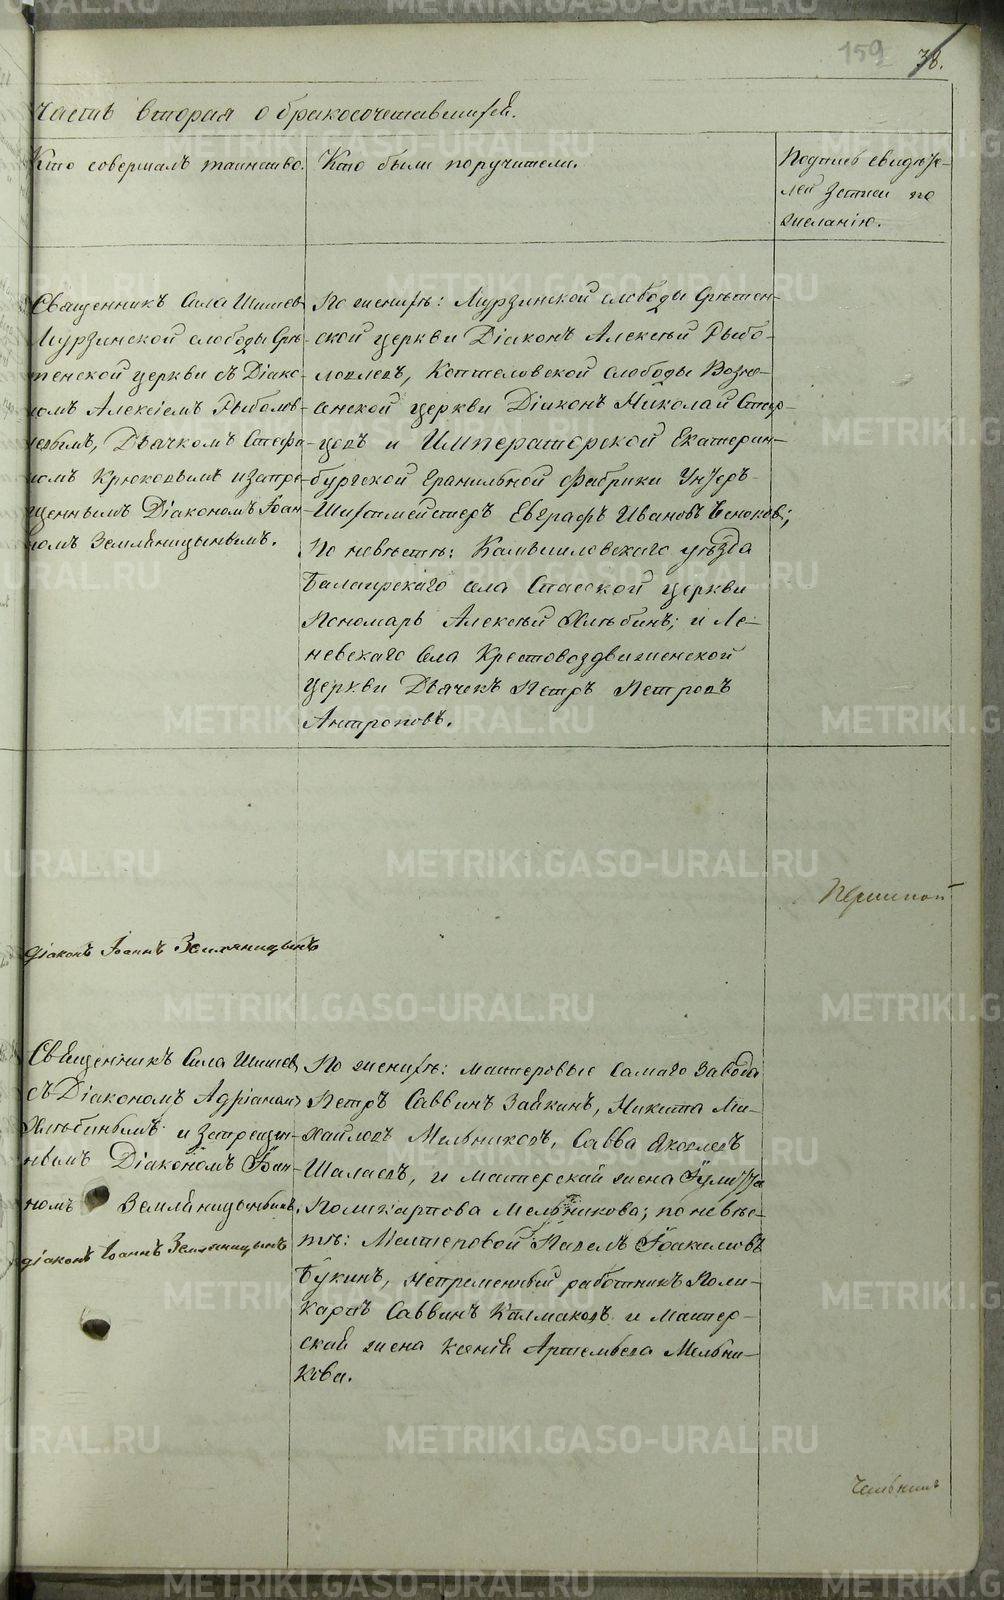 159
38.
Часть вторая о бракосочетавшихся.
Кто совершалъ таинство.
Кто были поручители.
Подпись свидѣте-
лей записи по
желанію.
Священникъ Сила Шишев
Мурзинской слободы Срѣ-
тенской церкви съ Діако-
номъ Алексіемъ Рыболов-
левымъ, Дьячкомъ Стефа-
номъ Крюковымъ и запре-
щеннымъ Діакономъ Іоан-
номъ Земляницынымъ.
По женихѣ: Мурзинской слободы Срѣтен-
ской церкви Діаконъ Алексѣй Рыбо-
ловлевъ, Коптеловской слободы Возне-
сенской церкви Діаконъ Николай
и Императорской Екатерин-
бургской Гранильной Фабрики Унтеръ-
Шихтмейстеръ Евграфъ Ивановъ
По невѣстѣ: Камышловскаго уѣзда
Балаирскаго села Спасской церкви
Пономарь Алексѣй Хлѣбинъ; и Ле-
невскаго Села Крестовоздвиженской
церкви Дьячекъ Петръ Петровъ
Антроповъ.
діаконъ Іоаннъ Земляницынъ
Священникъ Сила Шишев
съ Діакономъ Адріаномъ
Хлѣбинымъ и запрещен-
нымъ Діакономъ Іоан-
номъ Земляницынымъ.
діаконъ Іоаннъ Земляницынъ
По женихѣ: мастеровые самаго завода
Петръ Саввинъ Зайкинъ, Никита Ми-
хайловъ Мельниковъ, Савва Яковлевъ
Шалаевъ, и мастерская жена Іулитта
Поликарпова Мельникова; по невѣс-
тѣ: Мастеровой Павелъ Іоакимовъ
Букинъ, непременный работникъ Поли-
карпъ Саввинъ Калмаковъ и Мастер-
ская жена Ксенія Артемьева Мельни-
кова.